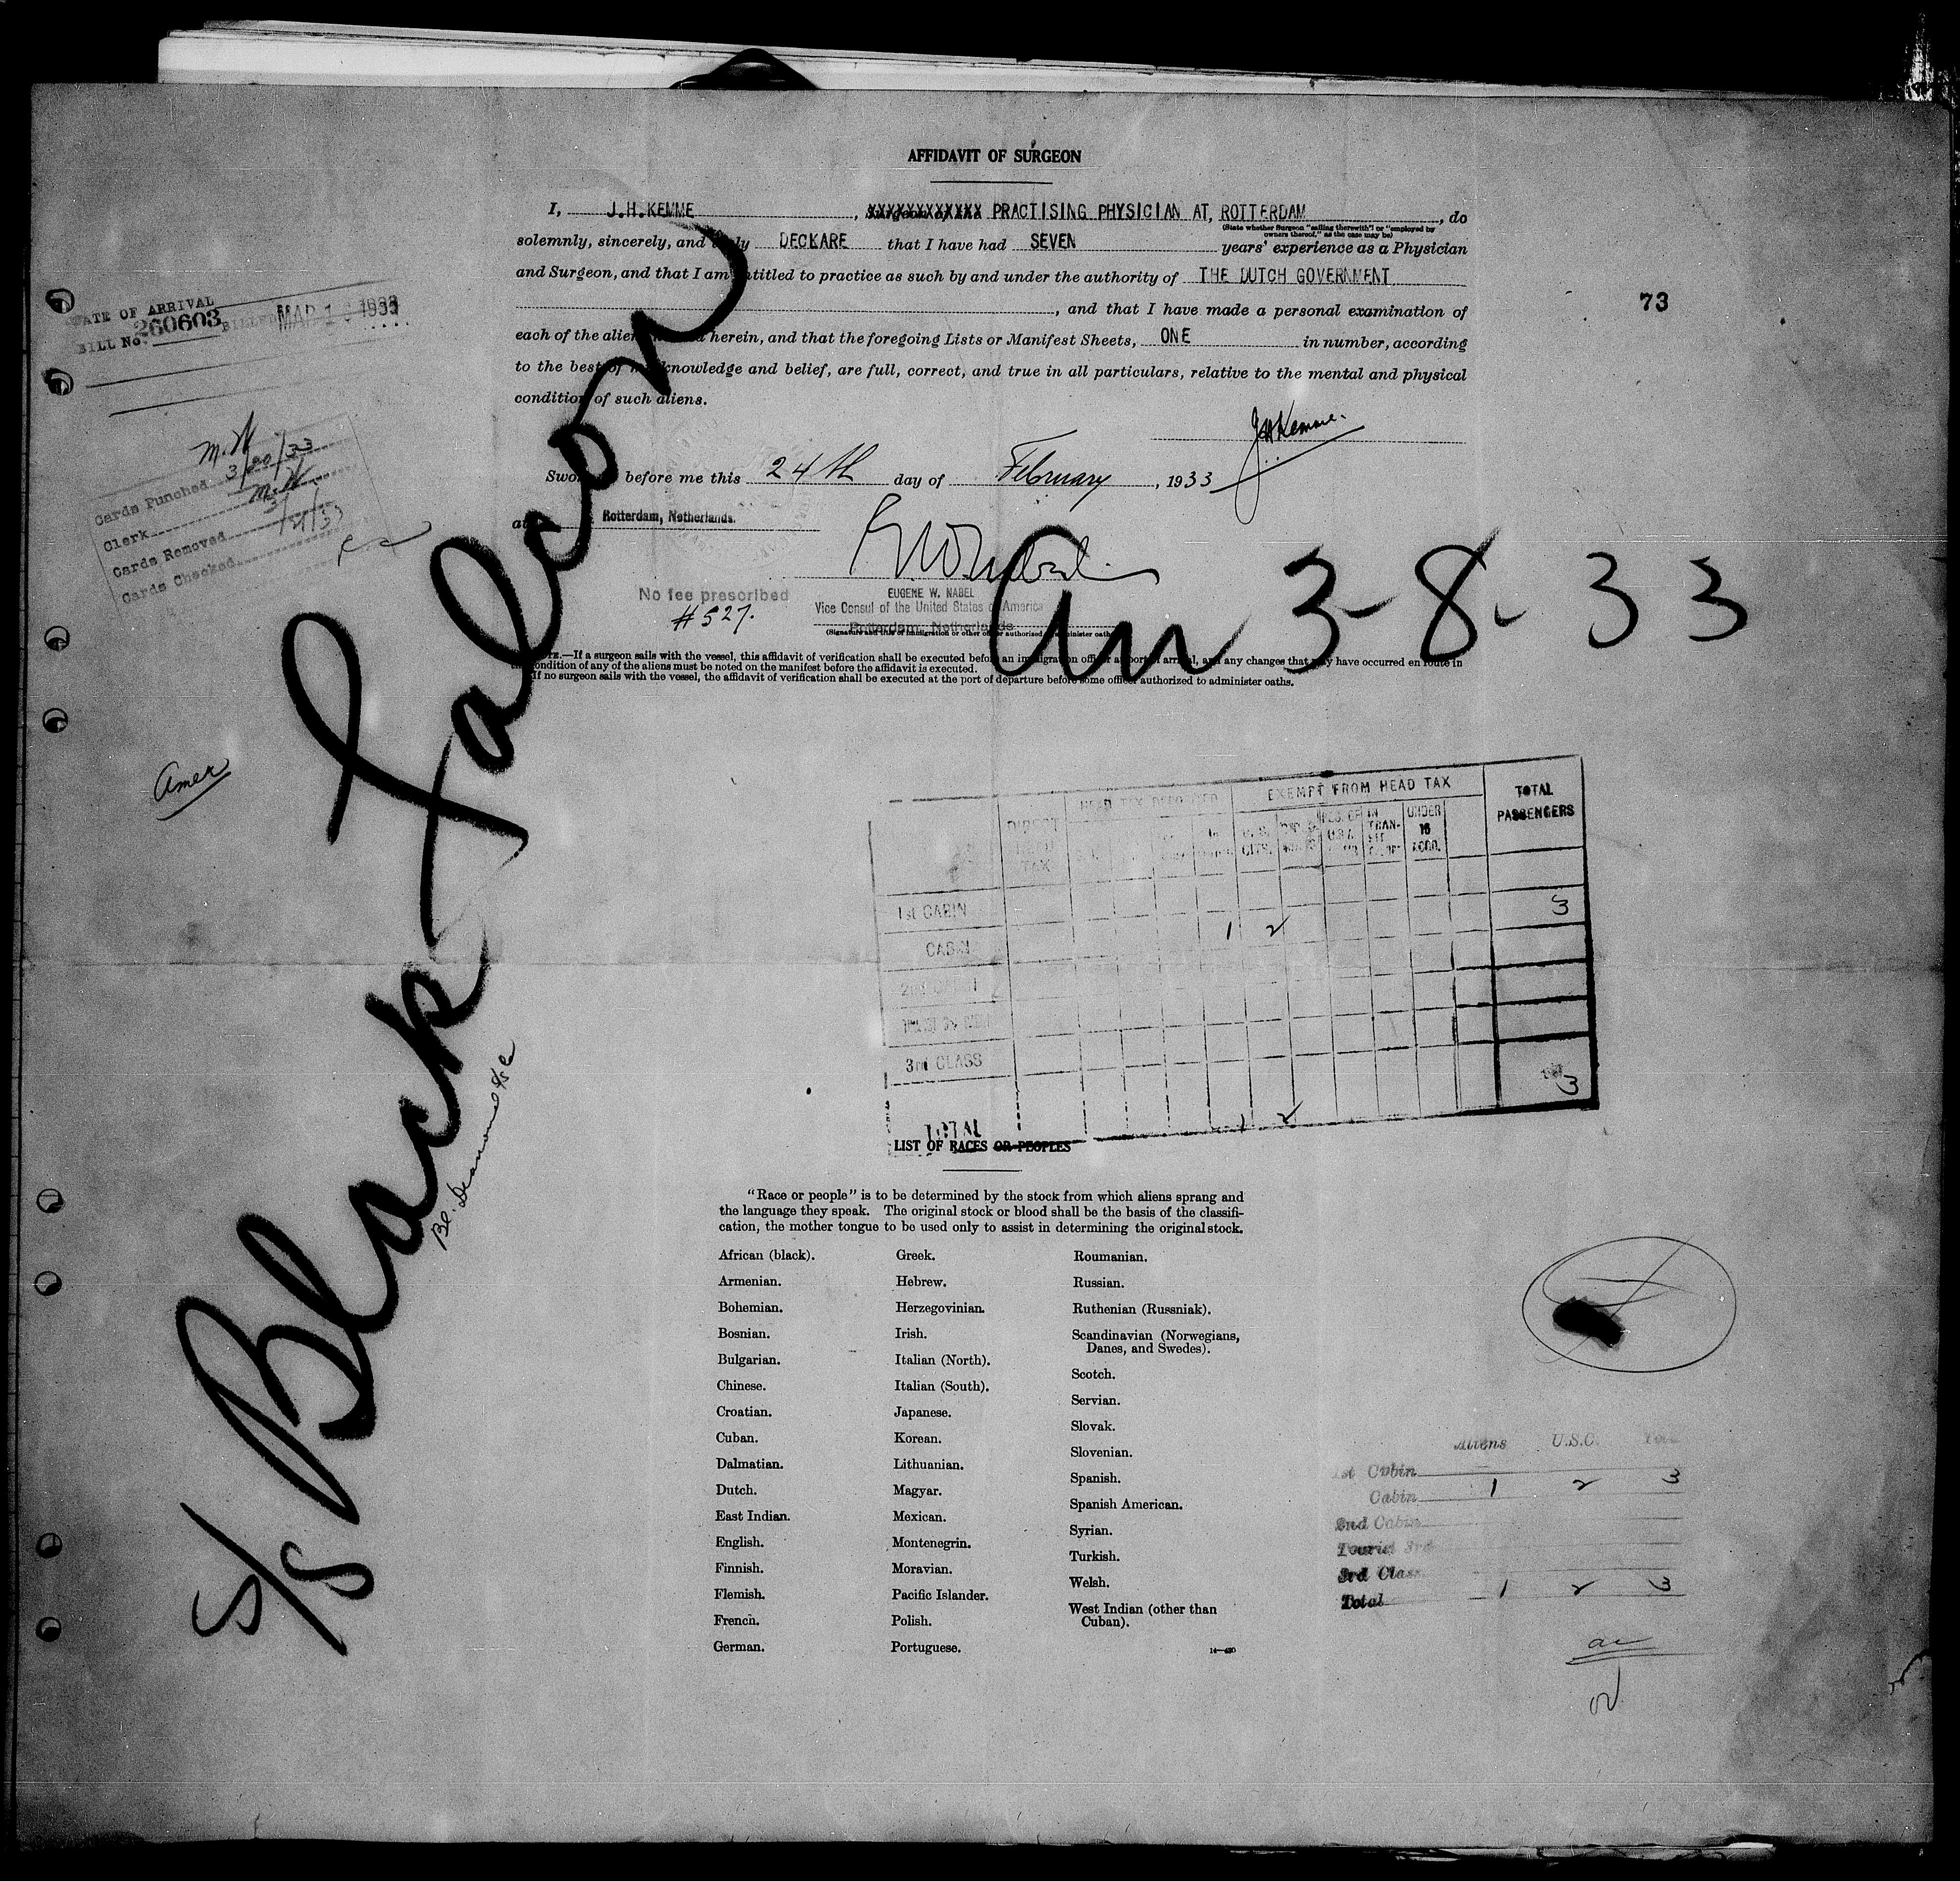 AFFIDAVIT OF SURGEON
I, J.H.KEMME, XXXXXXXXXXXX PRACTISING PHYSICIAN AT, ROTTERDAM, do
(State whether Surgeon "sailing therewith" or "employed by
owners thereof," as the case may be)
solemnly, sincerely, and DECKARE that I have had SEVEN years' experience as a Physician
and Surgeon, and that I am entitled to practice as such by and under the authority of THE DUTCH GOVERNMENT
, and that I have made a personal examination of
each of the aliens herein, and that the foregoing Lists or Manifest Sheets, ONE in number, according
to the best of my knowledge and belief, are full, correct, and true in all particulars, relative to the mental and physical
condition of such aliens.
J H Kemme.
73
DATE OF ARRIVAL
BILL No. 260603 BILLED MAR 1 1933
M. W
3/20/33
Cards Punched
M. W
Clerk
Cards Removed
Cards Checked
Sworn before me this 24th day of February, 1933
at Rotterdam, Netherlands.
No fee prescribed
#527.
EUGENE W. NABEL
Vice Consul of the United States of America
Rotterdam, Netherlands
(Signature and title of immigration or other officer authorized to administer oaths
Arr 3-8-33
NOTE.—If a surgeon sails with the vessel, this affidavit of verification shall be executed before an immigration officer at port of arrival, and any changes that may have occurred en route in
the condition of any of the aliens must be noted on the manifest before the affidavit is executed.
If no surgeon sails with the vessel, the affidavit of verification shall be executed at the port of departure before some officer authorized to administer oaths.
Amer
S/S Black Falcon
EXEMPT FROM HEAD TAX
TOTAL
PASSENGERS
DIRECT
HEAD
TAX
UNDER
16
ACCO.
1st CABIN 3
CABIN 1 2
3rd CLASS
3
TOTAL 1 2
LIST OF RACES OR PEOPLES
"Race or people" is to be determined by the stock from which aliens sprang and
the language they speak. The original stock or blood shall be the basis of the classifi-
cation, the mother tongue to be used only to assist in determining the original stock.
African (black).
Armenian.
Bohemian.
Bosnian.
Bulgarian.
Chinese.
Croatian.
Cuban.
Dalmatian.
Dutch.
East Indian.
English.
Finnish.
Flemish.
French.
German.
Greek.
Hebrew.
Herzegovinian.
Irish.
Italian (North).
Italian (South).
Japanese.
Korean.
Lithuanian.
Magyar.
Mexican.
Montenegrin.
Moravian.
Pacific Islander.
Polish.
Portuguese.
Roumanian.
Russian.
Ruthenian (Russniak).
Scandinavian (Norwegians,
Danes, and Swedes).
Scotch.
Servian.
Slovak.
Slovenian.
Spanish.
Spanish American.
Syrian.
Turkish.
Welsh.
West Indian (other than
Cuban).
Aliens U.S.C.
1st Cabin
Cabin 1 2 3
2nd Cabin
Tourist 3rd
3rd Class
Total 1 2 3